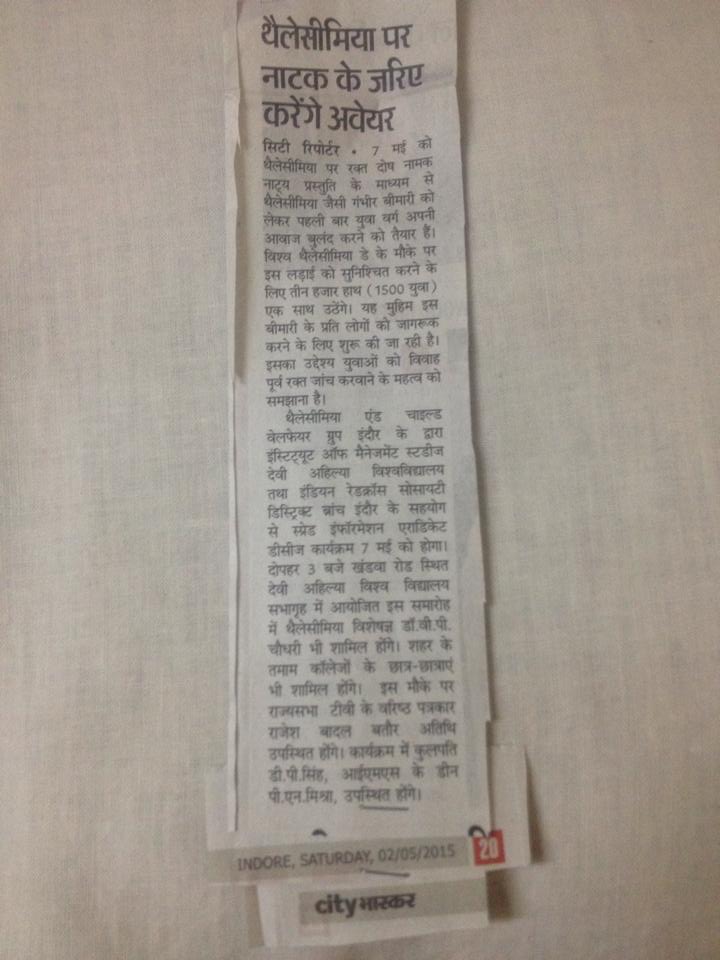 थैलेसीमिया पर
नाटक के जरिए
करेंगे अवेयर
सिटी रिपोर्टर • 7 मई को
थैलेसीमिया पर रक्त दोष नामक
नाट्य प्रस्तुति के माध्यम से
थैलेसीमिया जैसी गंभीर बीमारी को
लेकर पहली बार युवा वर्ग अपनी
आवाज बुलंद करने को तैयार हैं।
विश्व थैलेसीमिया डे के मौके पर
इस लड़ाई को सुनिश्चित करने के
लिए तीन हजार हाथ (1500 युवा)
एक साथ उठेंगे। यह मुहिम इस
बीमारी के प्रति लोगों को जागरूक
करने के लिए शुरू की जा रही है।
इसका उद्देश्य युवाओं को विवाह
पूर्व रक्त जांच करवाने के महत्व को
समझाना है।
थैलेसीमिया एंड चाइल्ड
वेलफेयर ग्रुप इंदौर के द्वारा
इंस्टिट्यूट ऑफ मैनेजमेंट स्टडीज
देवी अहिल्या विश्वविद्यालय
तथा इंडियन रेडक्रॉस सोसायटी
डिस्ट्रिक्ट ब्रांच इंदौर के सहयोग
से स्प्रेड इंफॉरमेशन एराडिकेट
डीसीज कार्यक्रम 7 मई को होगा।
दोपहर 3 बजे खंडवा रोड स्थित
देवी अहिल्या विश्व विद्यालय
सभागृह में आयोजित इस समारोह
में थैलेसीमिया विशेषज्ञ डॉ.वी.पी.
चौधरी भी शामिल होंगे। शहर के
तमाम कॉलेजों के छात्र-छात्राएं
भी शामिल होंगे। इस मौके पर
राज्यसभा टीवी के वरिष्ठ पत्रकार
राजेश बादल बतौर अतिथि
उपस्थित होंगे। कार्यक्रम में कुलपति
डी.पी.सिंह, आईएमएस के डीन
पी.एन.मिश्रा, उपस्थित होंगे।
INDORE, SATURDAY, 02/05/2015 20
city भास्कर